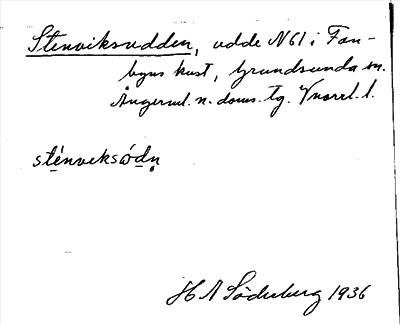 Stenviksudden, udde N61 i Fan-
byns kust, Grundsunda sn.
Ångerml. n. doms. tg. Vnorrl. l.
sténveksòdn
H A Söderberg 1936